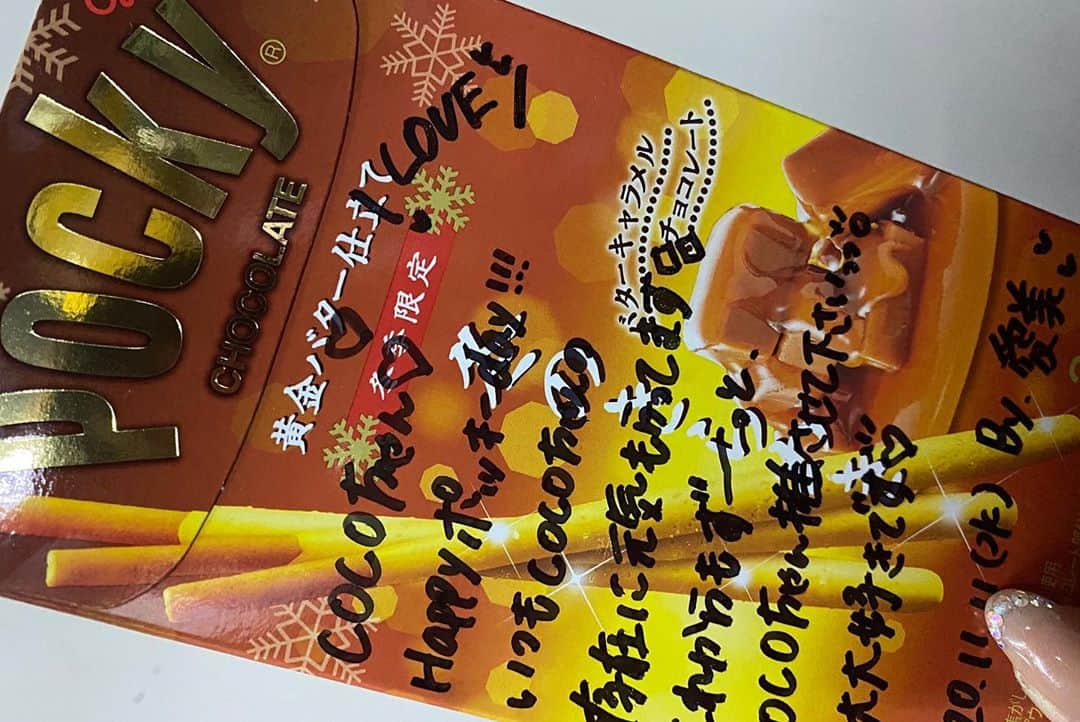 POCKY®
CHOCOLATE
黄金バター仕立て
冬季限定
バターキャラメル
チョコレート
LOVEを
COCOちゃん♡
Happyポッキーday!!!
いつもCOCOちゃんの
存在に元気もらってます
これからもずーーっと、
COCOちゃん推させて下さい
大大大好きです♡
20.11.11(水) By. 愛美